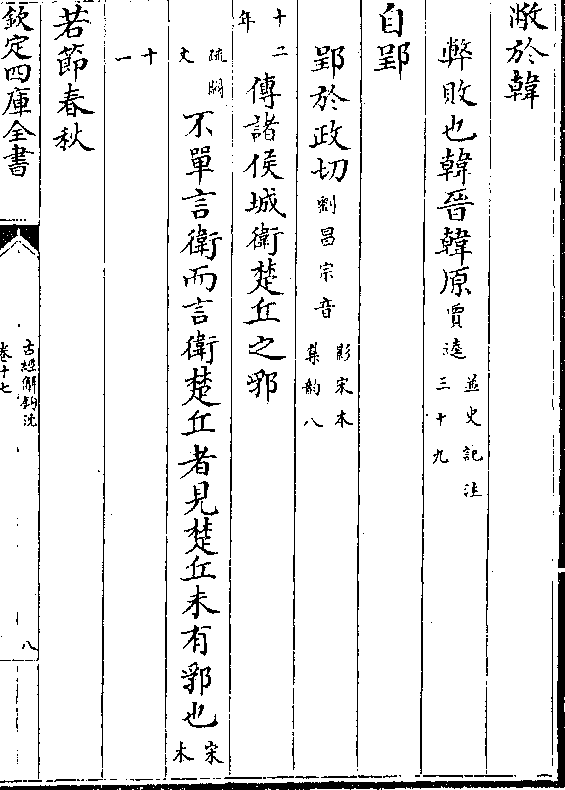 敝於韓
弊敗也韓晉韓原賈逵並史記注三十九
自郢
郢於政切劉昌宗音影宋本集韵八
十二年傳諸侯城衛楚丘之郛
不單言衛而言衛楚丘者見楚丘未有郛也宋本
疏闕文十一
若節春秋
欽定四庫全書
古經解鈎沈
卷十七
八